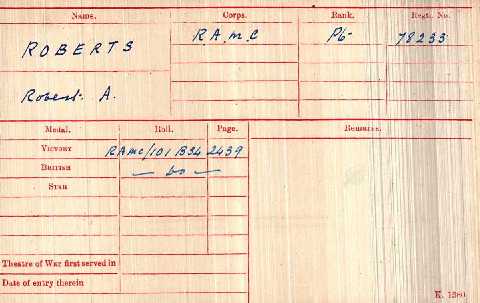 Name. Corps. Rank. Regtl. No.
ROBERTS R.A.M.C Pte 78233
Robert A.
Medal. Roll. Page. Remarks.
VICTORY RAMC/101 B34 2439
BRITISH — do —
STAR
Theatre of War first served in
Date of entry therein
K. 1380